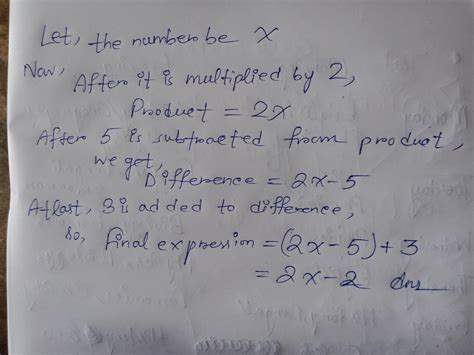 Let, the number be x
Now,
After it is multiplied by 2,
Product = 2x
After 5 is subtracted from product,
we get,
Difference = 2x-5
At last, 3 is added to difference,
so, final expression = (2x-5)+3
= 2x-2 Ans